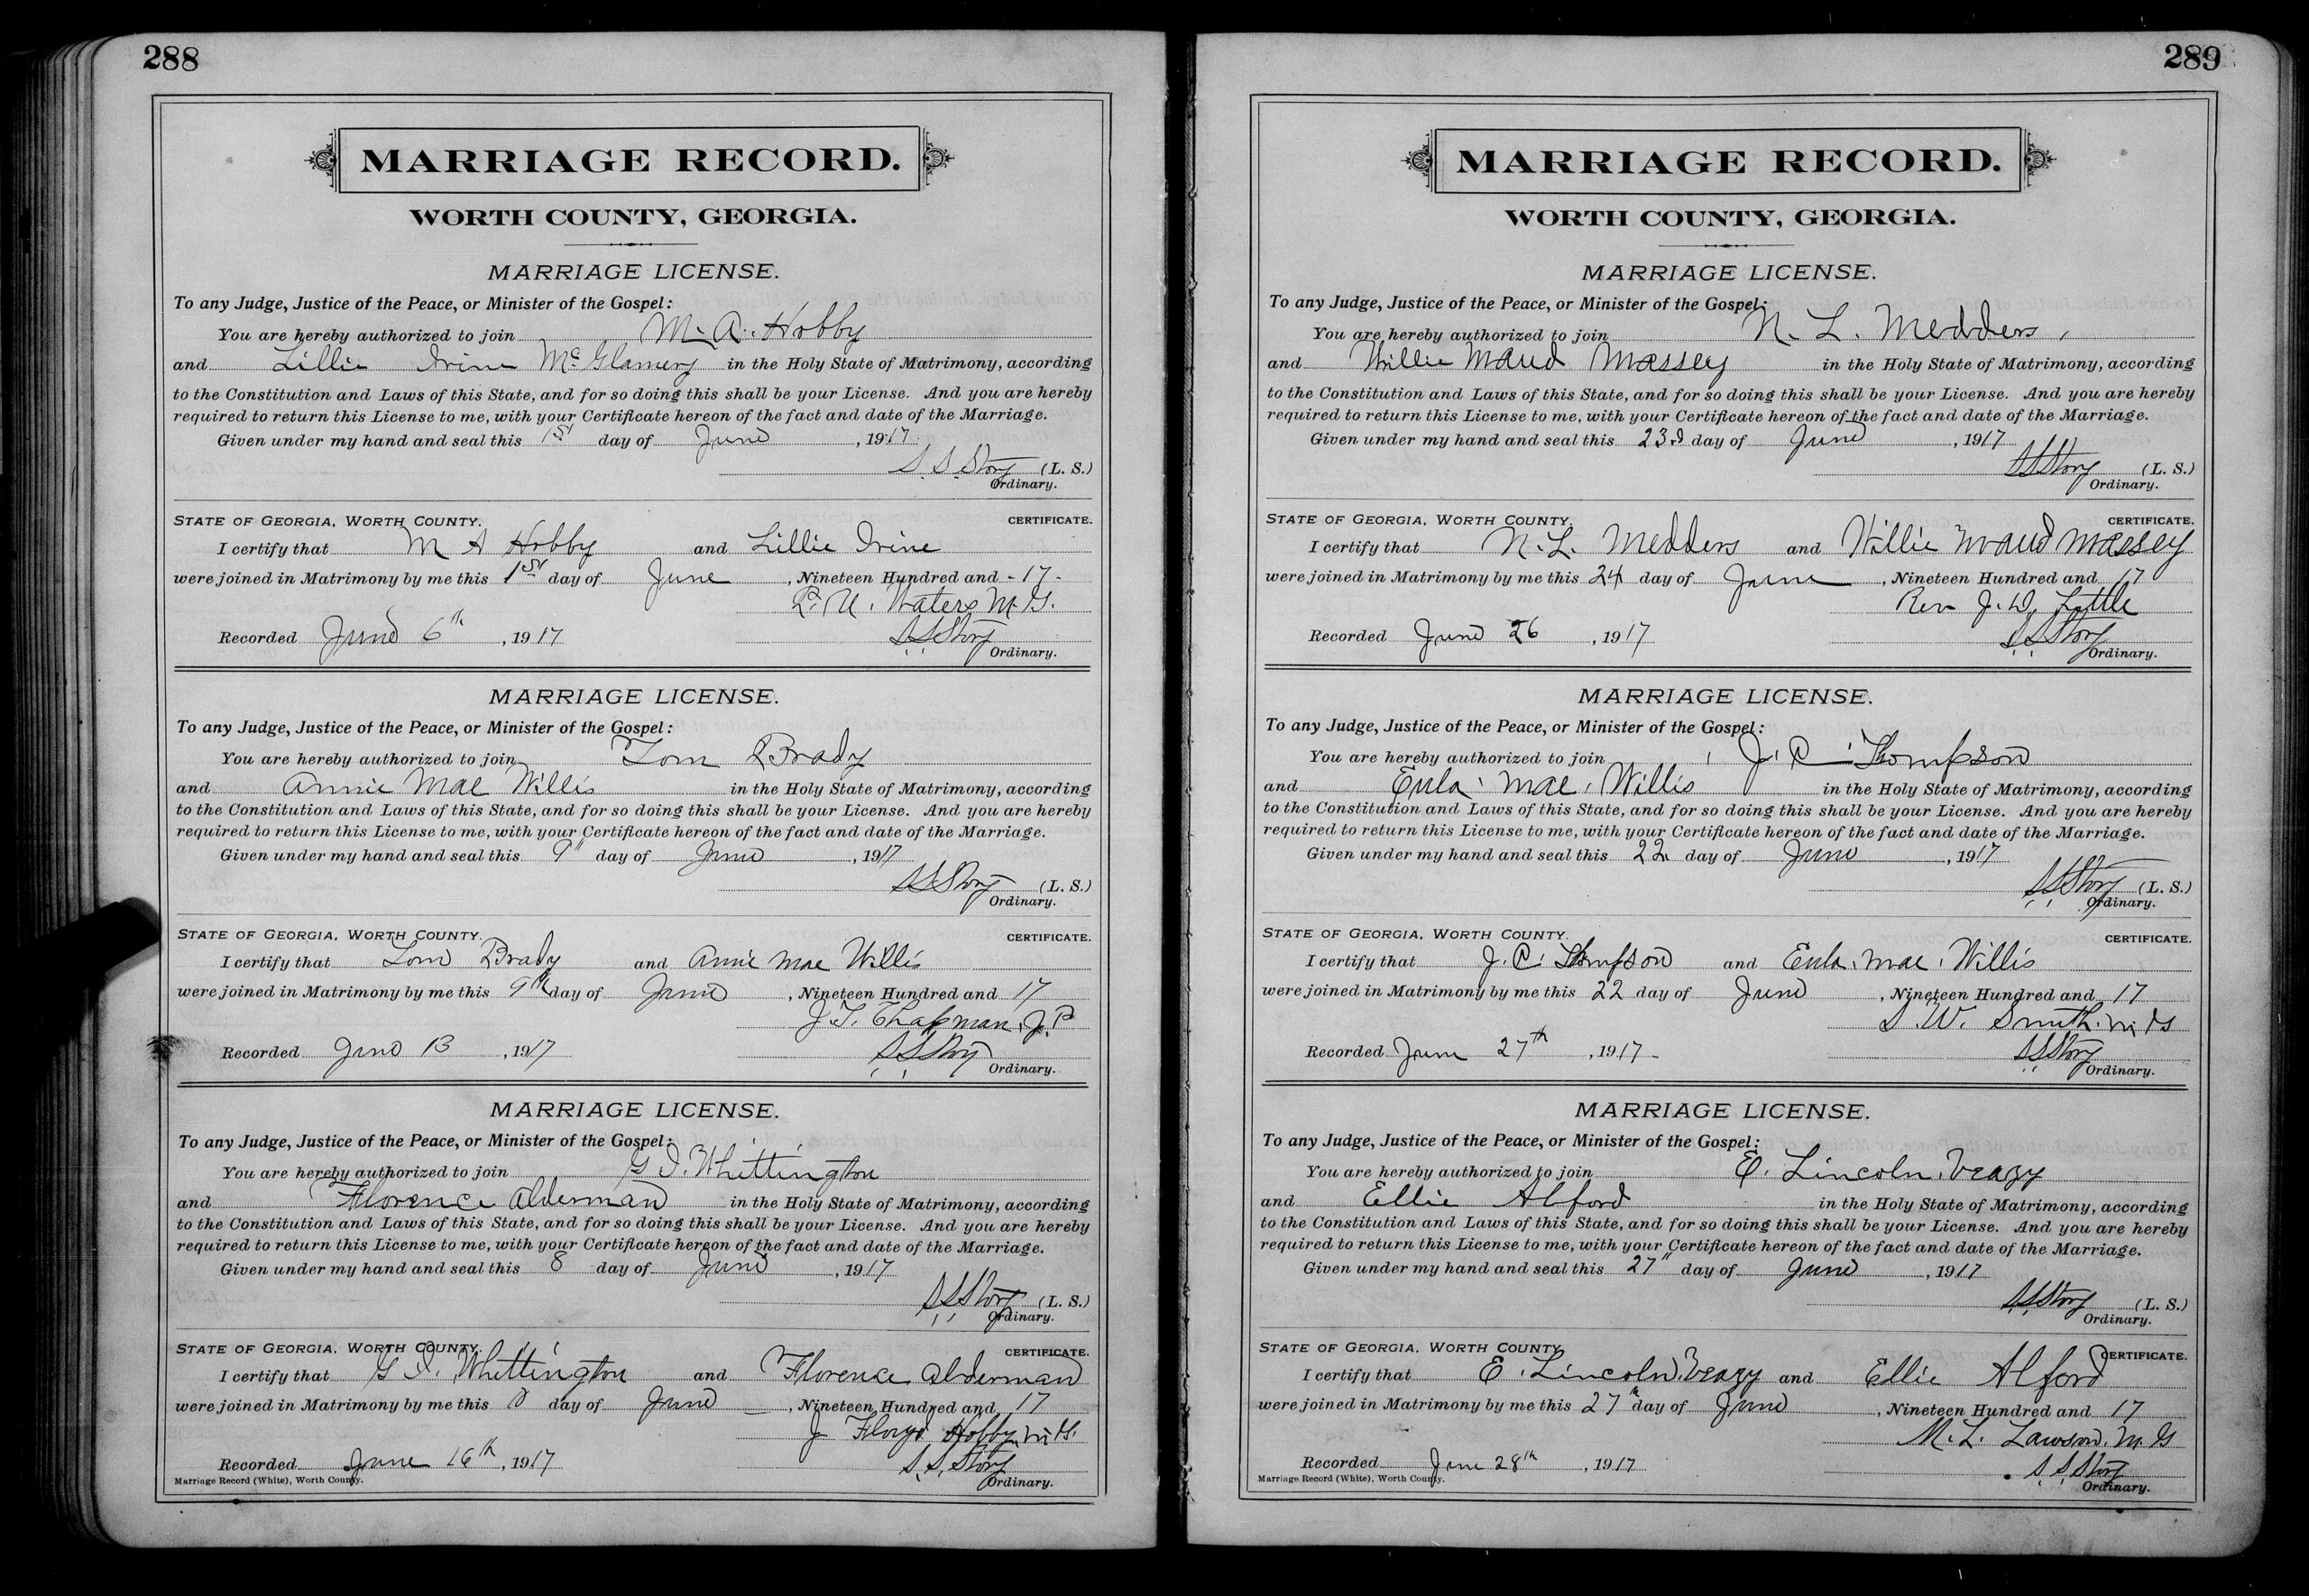 288
MARRIAGE RECORD.
WORTH COUNTY, GEORGIA.
MARRIAGE LICENSE.
To any Judge, Justice of the Peace, or Minister of the Gospel:
You are hereby authorized to join M. A. Hobby
and Lillie Irine McGlamery in the Holy State of Matrimony, according
to the Constitution and Laws of this State, and for so doing this shall be your License. And you are hereby
required to return this License to me, with your Certificate hereon of the fact and date of the Marriage.
Given under my hand and seal this 1st day of June, 1917
S. S. Story (L. S.)
Ordinary.
STATE OF GEORGIA, WORTH COUNTY. CERTIFICATE.
I certify that M A Hobby and Lillie Irine
were joined in Matrimony by me this 1st day of June, Nineteen Hundred and -17-
Waters M.G.
Recorded June 6th, 1917 S. S. Story
Ordinary.
MARRIAGE LICENSE.
To any Judge, Justice of the Peace, or Minister of the Gospel:
You are hereby authorized to join Tom Brady
and Annie Mae Willis in the Holy State of Matrimony, according
to the Constitution and Laws of this State, and for so doing this shall be your License. And you are hereby
required to return this License to me, with your Certificate hereon of the fact and date of the Marriage.
Given under my hand and seal this 9" day of June, 1917
S. S. Story (L. S.)
Ordinary.
STATE OF GEORGIA, WORTH COUNTY. CERTIFICATE.
I certify that Tom Brady and Annie Mae Willis
were joined in Matrimony by me this 9th day of June, Nineteen Hundred and 17
J. T. Chapman, J. P.
Recorded June 13, 1917 S. S. Story
Ordinary.
MARRIAGE LICENSE.
To any Judge, Justice of the Peace, or Minister of the Gospel:
You are hereby authorized to join G. I. Whittington
and Florence Alderman in the Holy State of Matrimony, according
to the Constitution and Laws of this State, and for so doing this shall be your License. And you are hereby
required to return this License to me, with your Certificate hereon of the fact and date of the Marriage.
Given under my hand and seal this 8 day of June, 1917
S. S. Story (L. S.)
Ordinary.
STATE OF GEORGIA, WORTH COUNTY. CERTIFICATE.
I certify that G. I. Whittington and Florence Alderman
were joined in Matrimony by me this 8 day of June, Nineteen Hundred and 17
J Floyd Hobby M.G.
Recorded June 16th, 1917 S. S. Story
Marriage Record (White), Worth County. Ordinary.
289
MARRIAGE RECORD.
WORTH COUNTY, GEORGIA.
MARRIAGE LICENSE.
To any Judge, Justice of the Peace, or Minister of the Gospel:
You are hereby authorized to join N. L. Medders
and Willie Maud Massey in the Holy State of Matrimony, according
to the Constitution and Laws of this State, and for so doing this shall be your License. And you are hereby
required to return this License to me, with your Certificate hereon of the fact and date of the Marriage.
Given under my hand and seal this 23d day of June, 1917
S. S. Story (L. S.)
Ordinary.
STATE OF GEORGIA, WORTH COUNTY. CERTIFICATE.
I certify that N. L. Medders and Willie Maud Massey
were joined in Matrimony by me this 24 day of June, Nineteen Hundred and 17
Rev J. W. Little
Recorded June 26, 1917 S. S. Story
Ordinary.
MARRIAGE LICENSE.
To any Judge, Justice of the Peace, or Minister of the Gospel:
You are hereby authorized to join J. C. Thompson
and Eula Mae Willis in the Holy State of Matrimony, according
to the Constitution and Laws of this State, and for so doing this shall be your License. And you are hereby
required to return this License to me, with your Certificate hereon of the fact and date of the Marriage.
Given under my hand and seal this 22 day of June, 1917
S. S. Story (L. S.)
Ordinary.
STATE OF GEORGIA, WORTH COUNTY. CERTIFICATE.
I certify that J. C. Thompson and Eula Mae Willis
were joined in Matrimony by me this 22 day of June, Nineteen Hundred and 17
S. W. Smith. M G
Recorded June 27th, 1917- S. S. Story
Ordinary.
MARRIAGE LICENSE.
To any Judge, Justice of the Peace, or Minister of the Gospel:
You are hereby authorized to join E. Lincoln Veazy
and Ellie Alford in the Holy State of Matrimony, according
to the Constitution and Laws of this State, and for so doing this shall be your License. And you are hereby
required to return this License to me, with your Certificate hereon of the fact and date of the Marriage.
Given under my hand and seal this 27" day of June, 1917
S. S. Story (L. S.)
Ordinary.
STATE OF GEORGIA, WORTH COUNTY. CERTIFICATE.
I certify that E. Lincoln Veazy and Ellie Alford
were joined in Matrimony by me this 27th day of June, Nineteen Hundred and 17
M. L. Lawson. M. G
Recorded June 28th, 1917 S. S. Story
Marriage Record (White), Worth County. Ordinary.